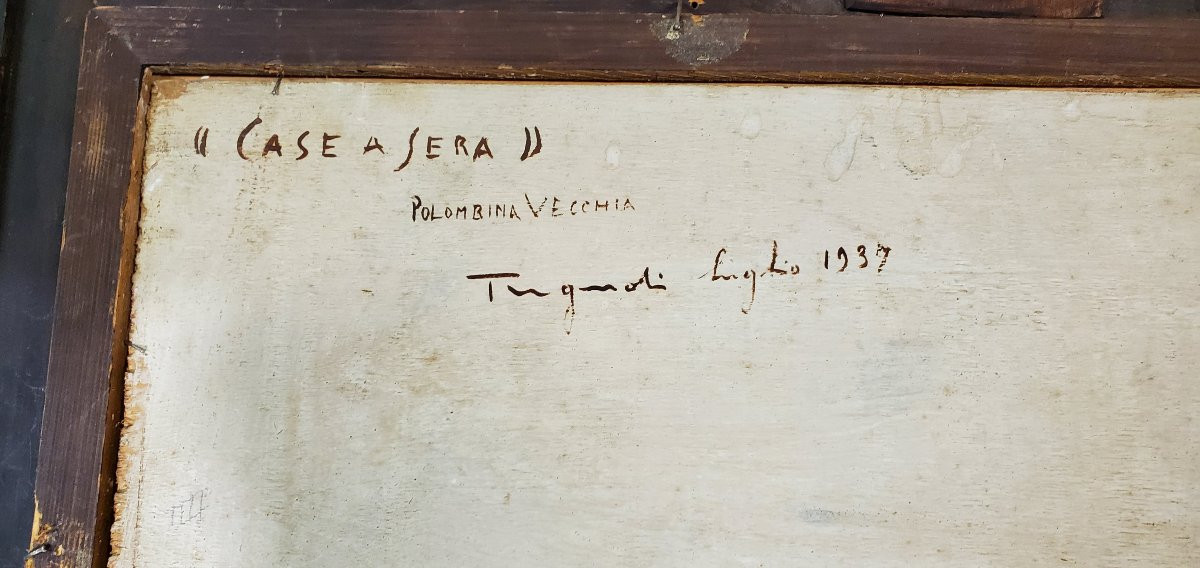 « CASE A SERA »
POLOMBINA VECCHIA
Tugnoli Luglio 1937